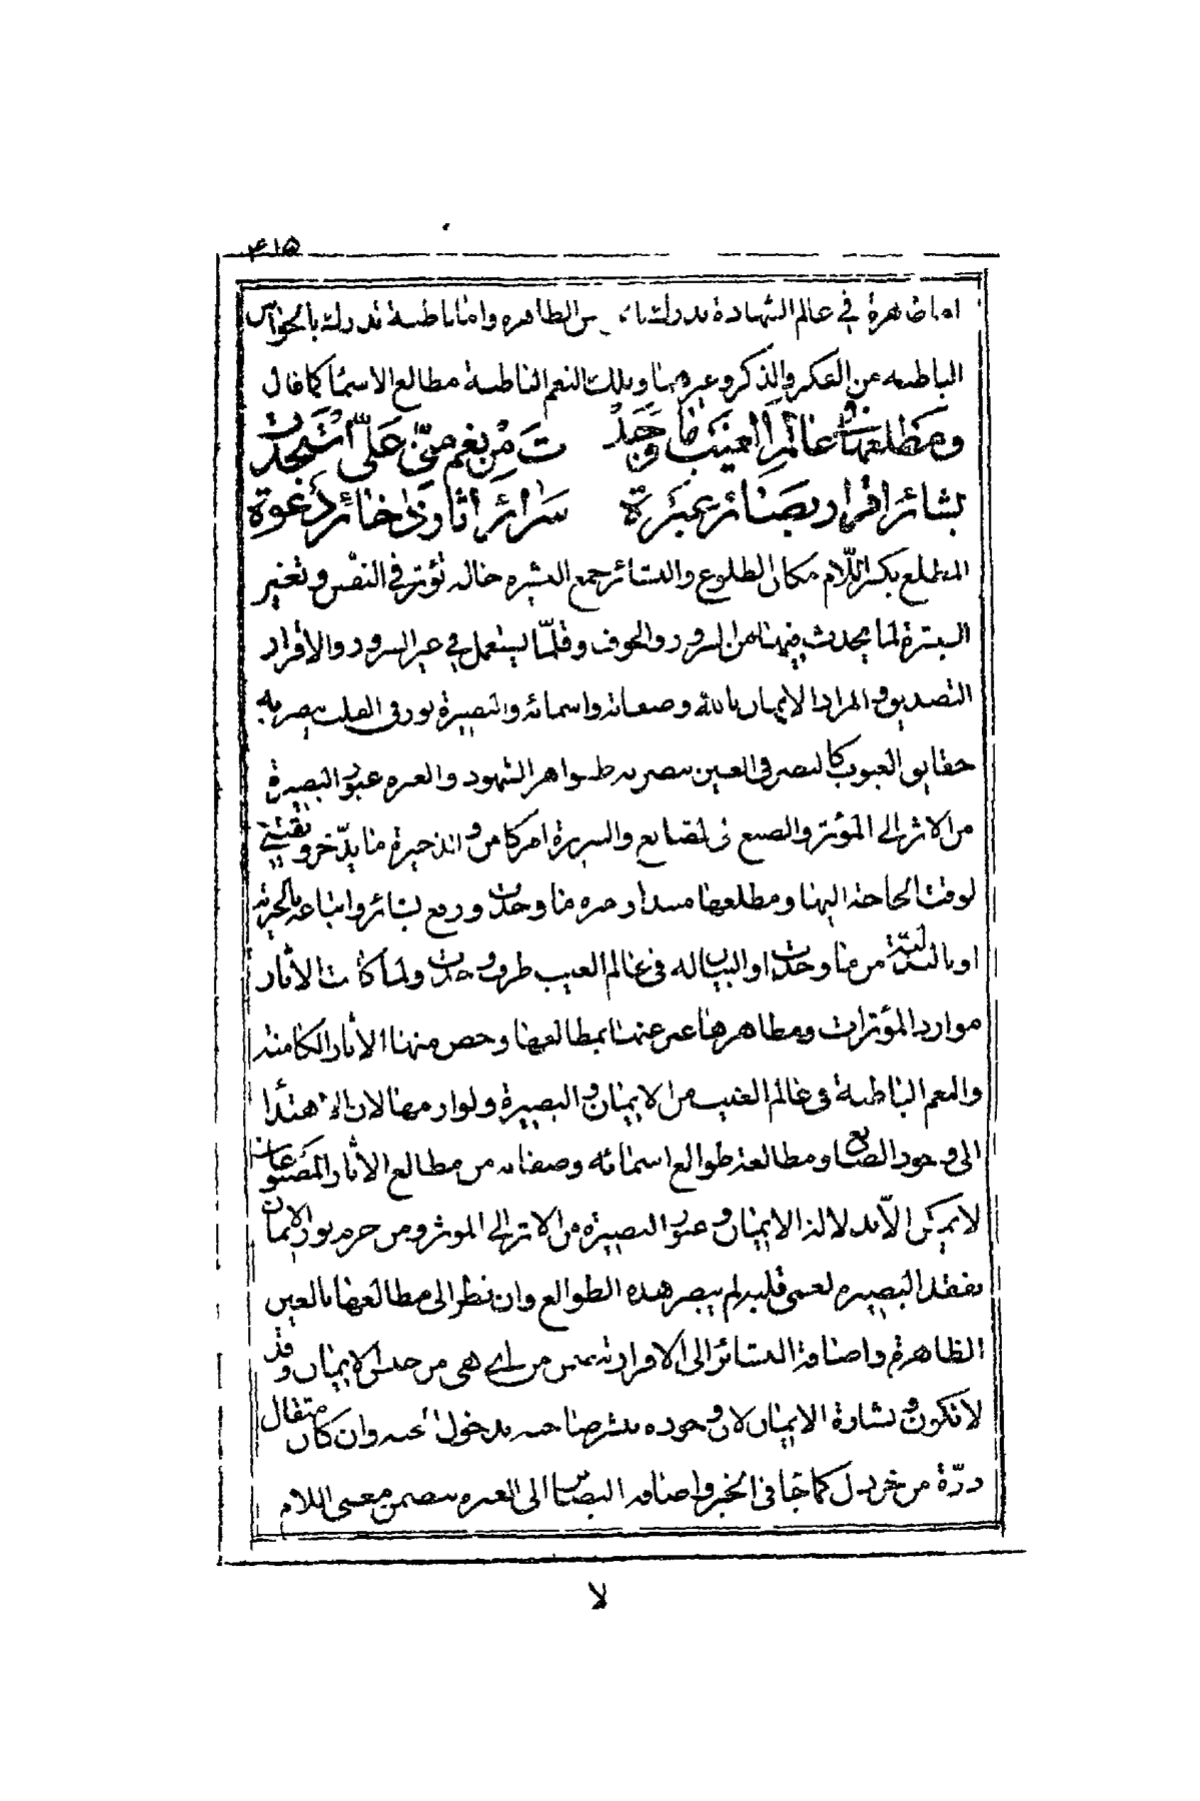 ٤١٥
اما ظاهرة في عالم الشهادة تدرك الظاهره واما باطنة تدرك بالحواس
الباطنه من الفكر والذكر وغيرهما وتلك النعم الباطنة مطالع الاسما كما قال
ومطلعها في عالم الغيب ما وجدْ تَ مِن نِعَمٍ مِنّي عَلَيَّ استجدَّت
بشائر اقرار بصائر عبرة سرائر اثار ذخائر دعوة
المطلع بكسر اللام مكان الطلوع والبشائر جمع البشيره حاله تؤثر في النفس وتغير
البشرة لما يحدث فيها من السرور والخوف وقلّما يستعمل في غير السرور والاقرار
التصديق والمراد الايمان بالله وصفاته واسمائه والبصيرة نور في القلب يبصر به
حقايق الغيوب كالبصر في العين يبصر به ظواهر الشهود والعبره عبور البصيرة
من الاثر الى المؤثر والصنع الى الصانع والسريرة امر كامن والذخيرة ما يدّخر ويقتنى
لوقت الحاجة اليها ومطلعها مبتدا وخبره ما وجدت ورفع بشائر واتباعه بالخبرية
او بالبدلية من ما وجدت او البيان له في عالم الغيب ظرف وجدت ولما كانت الاثار
موارد المؤثرات ومظاهرها عبر عنها بمطالعها وخص منها الاثار الكامنة
والنعم الباطنة في عالم الغيب من الايمان والبصيرة ولوازمها لان الاهتدا
الى وجود الصانع ومطالعة طوالع اسمائه وصفاته من مطالع الاثار والمصنوعات
لا يمكن الّا بدلالة الايمان وعبور البصيرة من الاثر الى المؤثر ومن حرم نور الايمان
بفقد البصيره لعمى قلبه لم يبصر هذه الطوالع وان نظر الى مطالعها بالعين
الظاهرة واضافة البشائر الى الاقرار من اي هي من جنس الايمان وقد
لا تكون وبشارة الايمان لان وجوده يبشر صاحبه بدخول الجنه وان كان مثقال
ذرّة من خردل كما جا في الخبر واضافه البصائر الى العبره يتضمن معنى اللام
لا